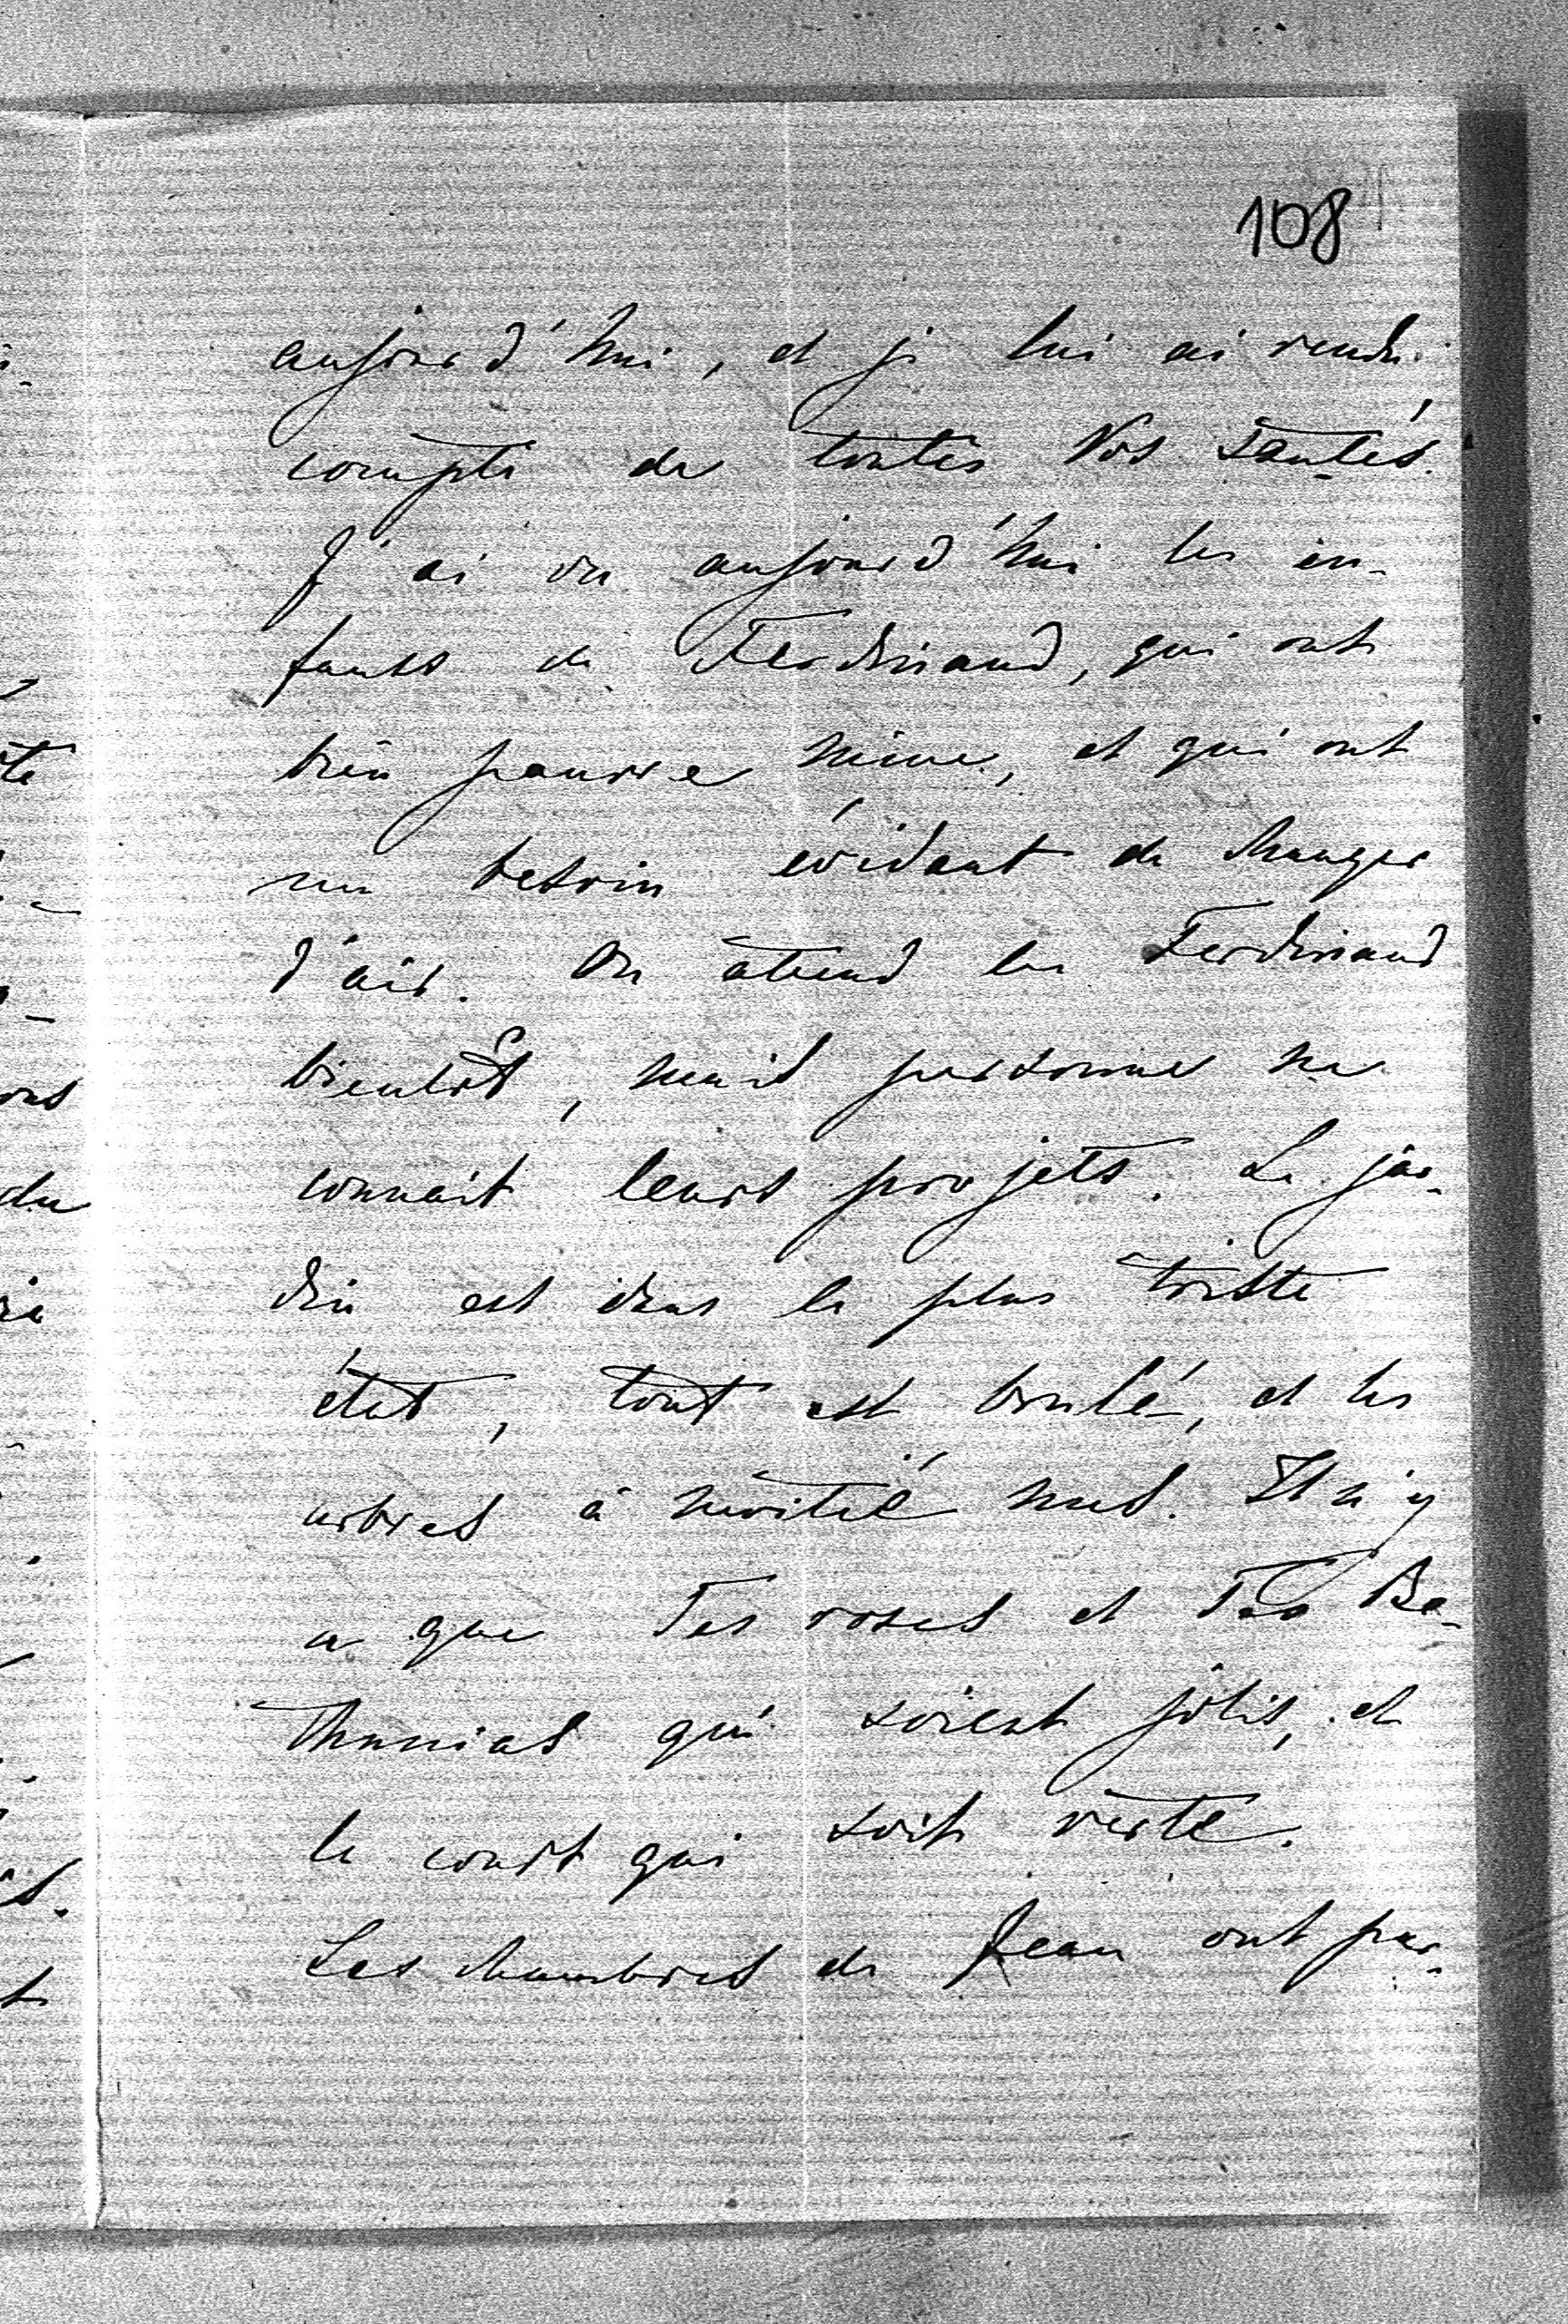 108
aujourd'hui, et je lui ai rendu
compte de toutes Vos santés.
J'ai vu aujourd'hui les en-
fants de Ferdinand, qui ont
bien pauvre mine, et qui ont
un besoin évidant de changer
d'air. On attend les Ferdinand
bientôt, mais personne ne
connait leurs projets. Le jar-
din est dans le plus triste
état, tout est brulé, et les
arbres à moitié nus. Il n'y
a que Tes roses et Tes Be-
thunias qui soient jolis, et
le court qui soit verte.
Les chambres de Jean ont par-